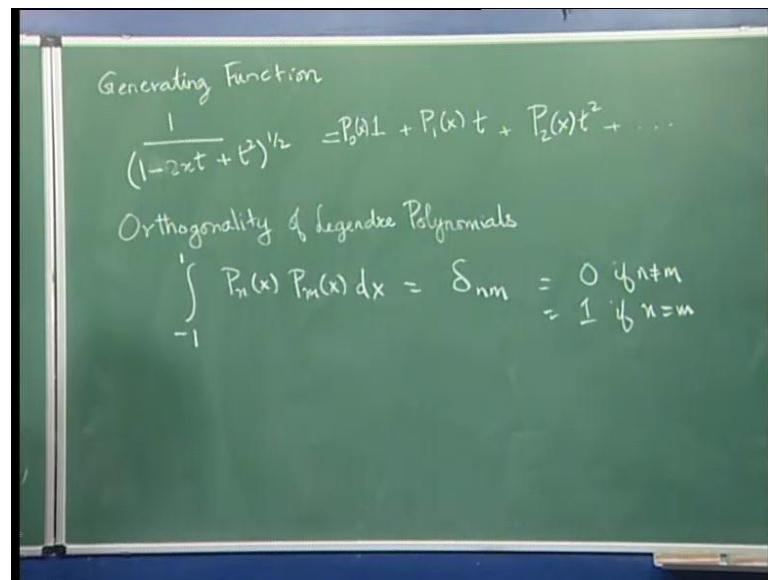 Generating Function
1/(1-2xt + t²)^1/2 = P₀(x)1 + P₁(x) t + P₂(x)t² + ....
Orthogonality of Legendre Polynomials
∫₋₁¹ Pₙ(x) Pₘ(x) dx = δₙₘ = 0 if n≠m
= 1 if n=m